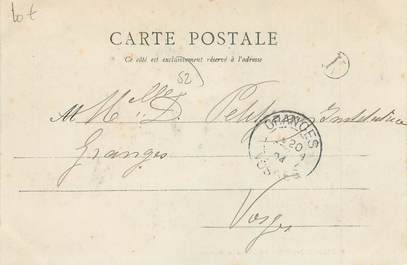 Lot
CARTE POSTALE
Ce côté est exclusivement réservé à l'adresse
52
Melle D. Institutrice
GRANGES
20
04
Granges
Vosges